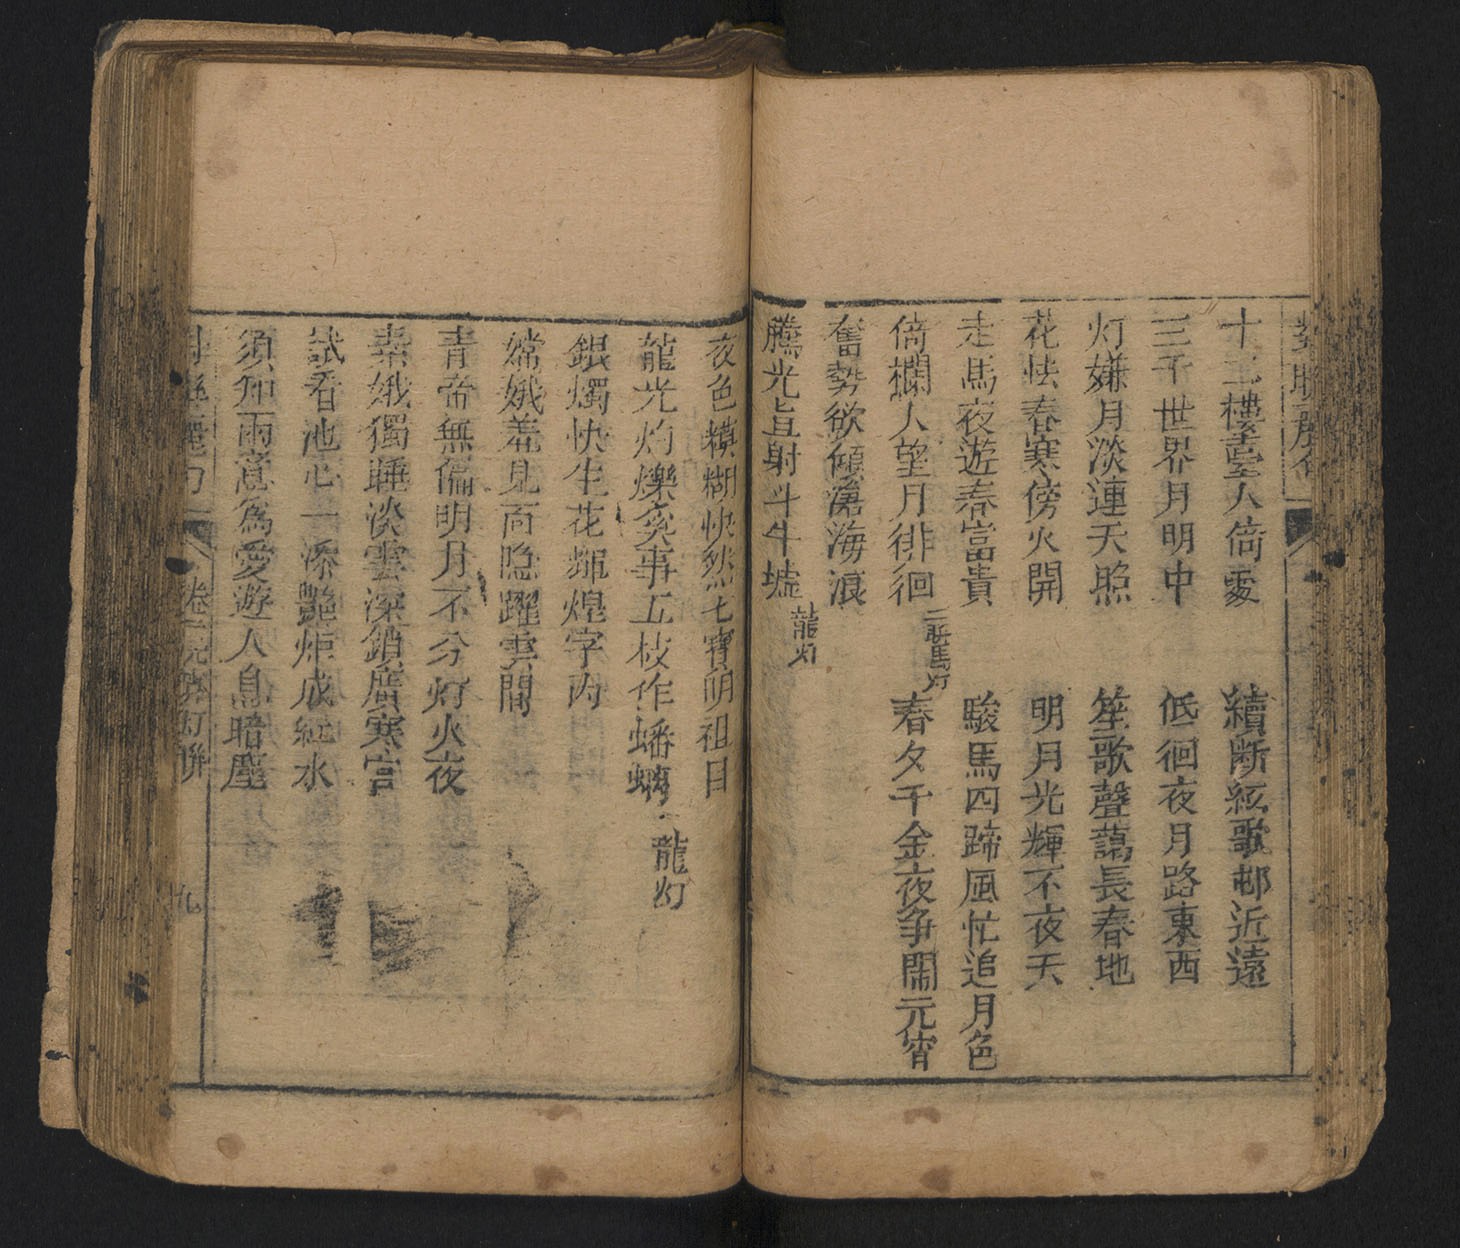 十二樓臺人倚處　續断絃歌邨近遠
三千世界月明中　低徊夜月路東西
灯嫌月淡連天照　笙歌聲藹長春地
花怯春寒傍火開　明月光輝不夜天
走馬夜遊春富貴　駿馬四蹄風忙追月色
倚欄人望月徘徊　馬灯　春夕千金夜争閙元宵
奮勢欲傾滄海浪
騰光直射斗牛墟　龍灯
夜色糢糊恍然七寳明祖日
龍光灼爍奕事五枝作蟠螭　龍灯
銀燭快生花輝煌字内
嫦娥羞見面隐躍雲間
青帝無偏明月不分灯火夜
素娥獨睡淡雲深鎖廣寒宫
試看池心一添艶炬成紅水
須知雨意為愛遊人息暗塵